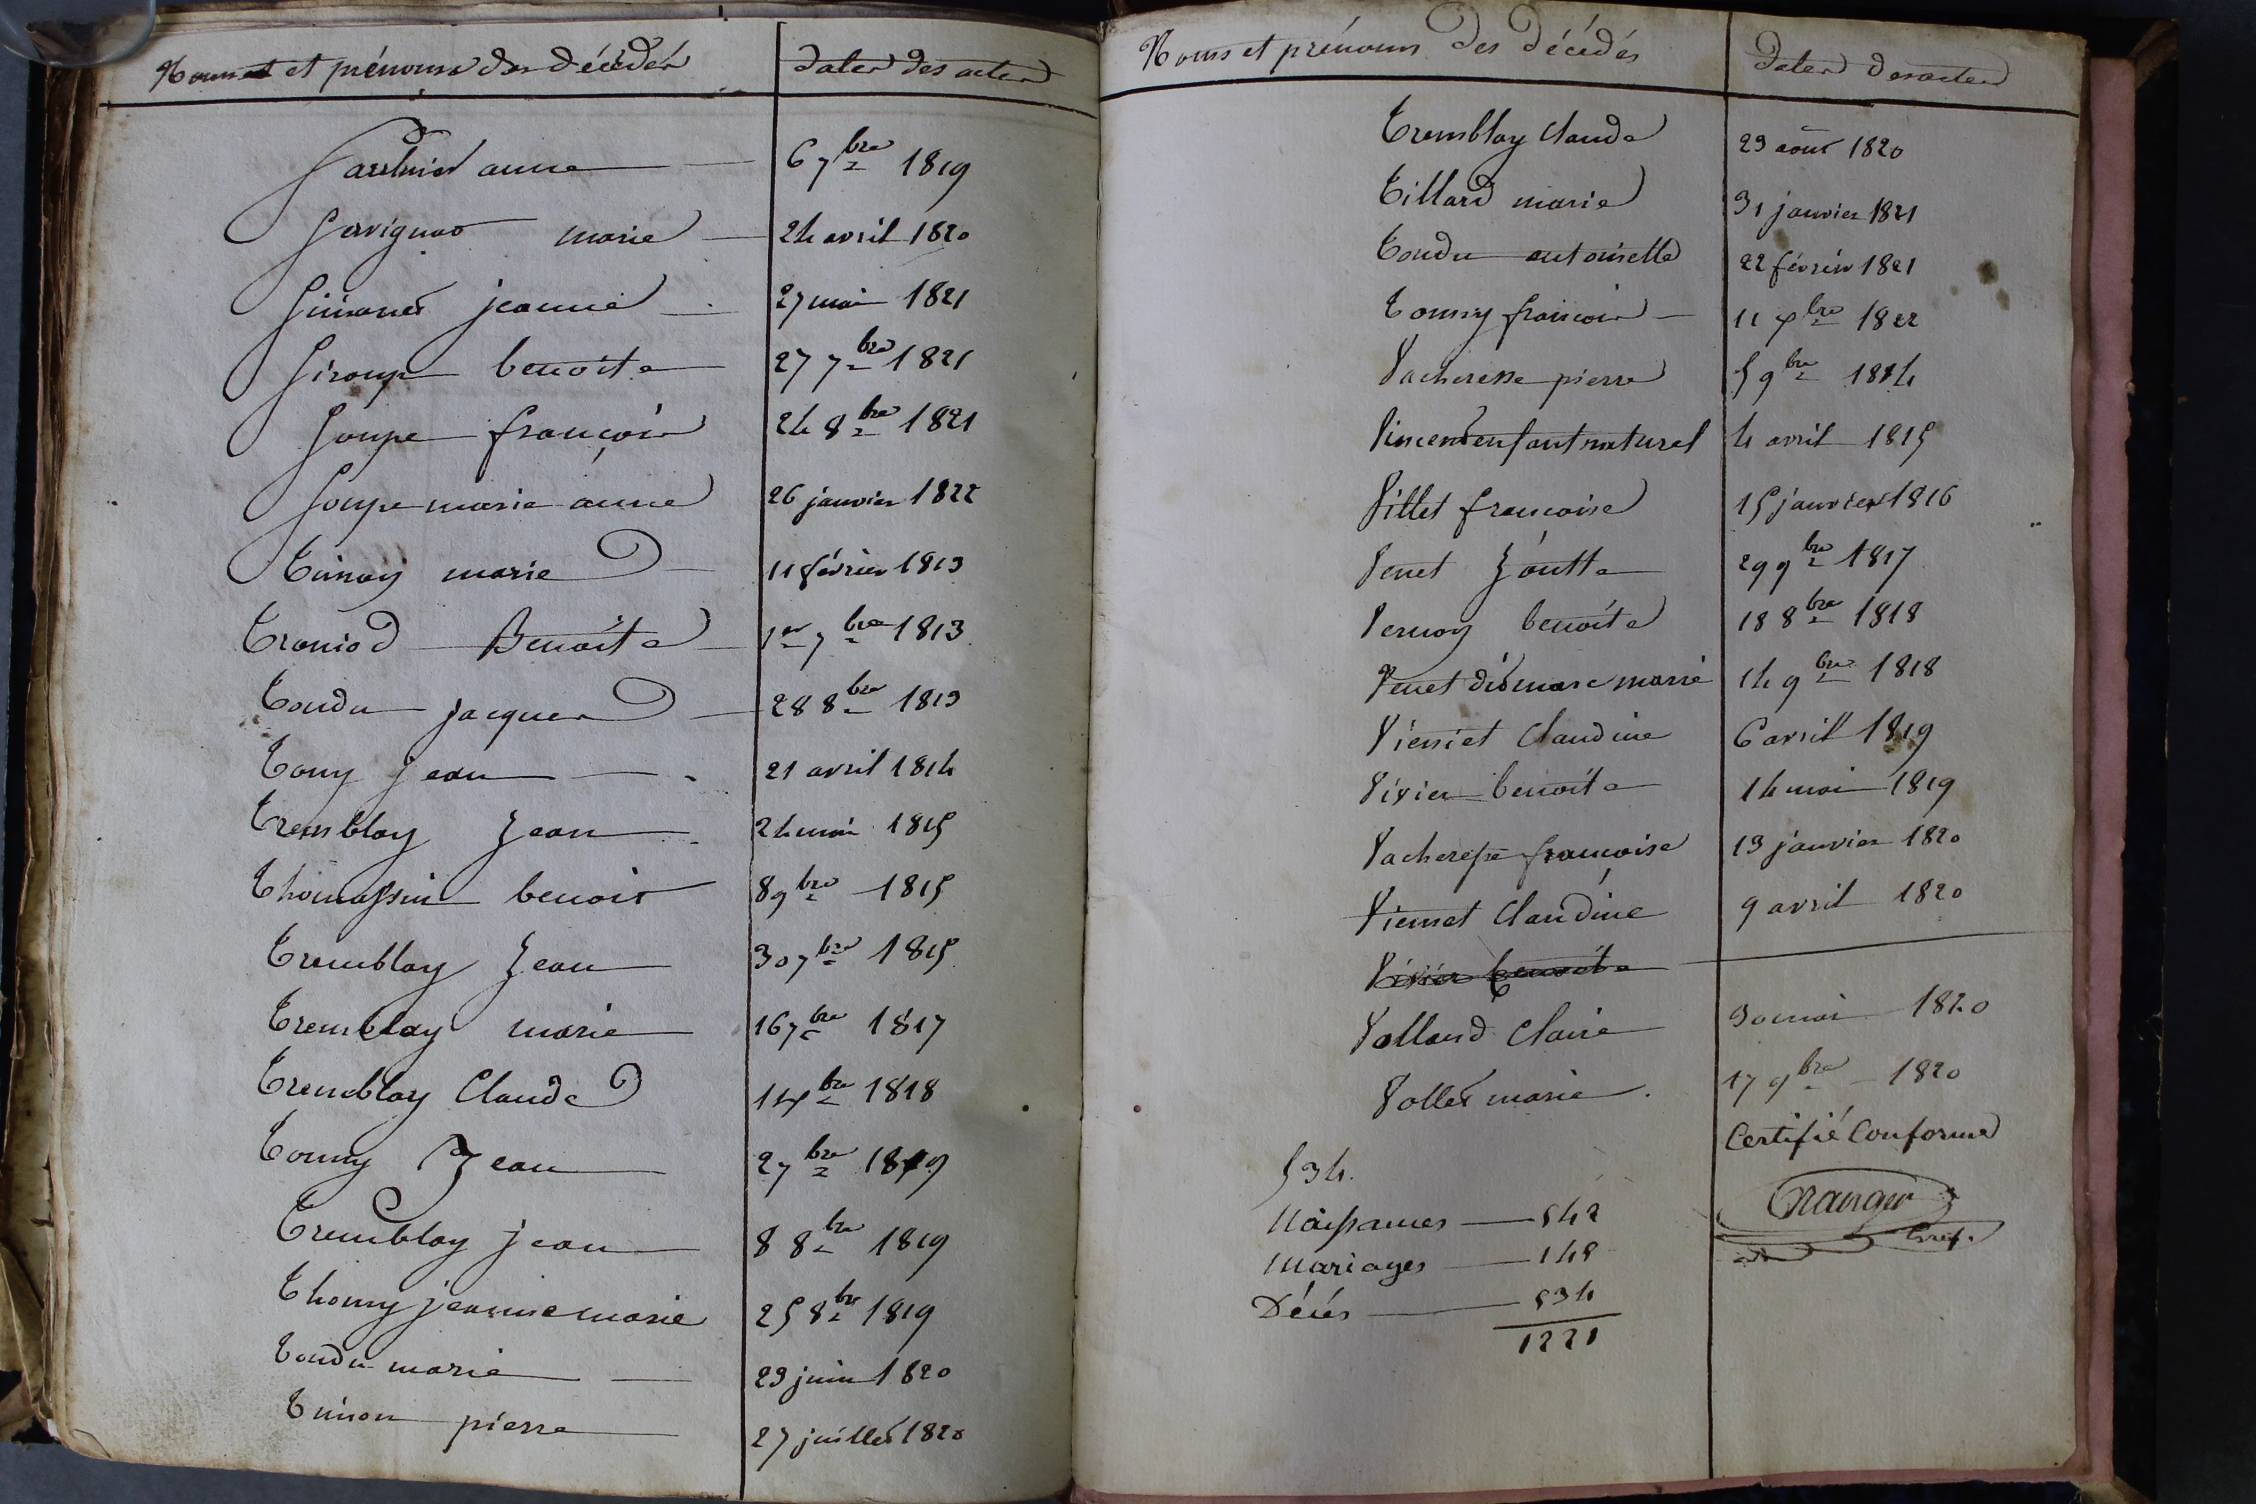 Noms et prénoms des décédés
dates des actes
Saulnier anne 6 7bre 1819
Savignat marie 24 avril 1820
Simonet jeanne 27 mai 1821
Siroupe benoite 27 7bre 1821
Soupe françois 24 8bre 1821
Soupe marie anne 26 janvier 1822
marie 11 février 1813
Troniod Benoite 1er 7bre 1813
Tondu jacques 28 8bre 1813
Tomy jean 21 avril 1814
Tremblay Jean 24 mai 1815
Thomassin benoit 8 9bre 1815
Tremblay Jean 30 7bre 1815
Tremblay marie 16 7bre 1817
Tremblay Claude 1818
Tomy Jean 2 7bre 1819
Tremblay jean 8 8bre 1819
Thomy jeanne marie 25 8bre 1819
Tondu marie 23 juin 1820
pierre 27 juillet 1820
Noms et prénoms des décédés
Dates des actes
Tremblay Claude 29 août 1820
Tillard marie 31 janvier 1821
Tondu antoinette 22 février 1821
Tomy françois 11 Xbre 1822
Vacheresse pierre 5 9bre 1814
Vincent enfant naturel 4 avril 1815
Villet françoise 15 janvier 1816
Venet 29 9bre 1817
Vernoy benoite 18 8bre 1818
Venet marie 14 9bre 1818
Viennet Claudine 6 avril 1819
Vivier benoite 14 mai 1819
Vacheresse françoise 13 janvier 1820
Viennet Claudine 9 avril 1820
Vivier benoite
Volland Claire 30 mai 1820
Vollet marie 17 9bre 1820
Certifié Conforme
534.
Naissances 542
Mariages 145
Décès 534
1221